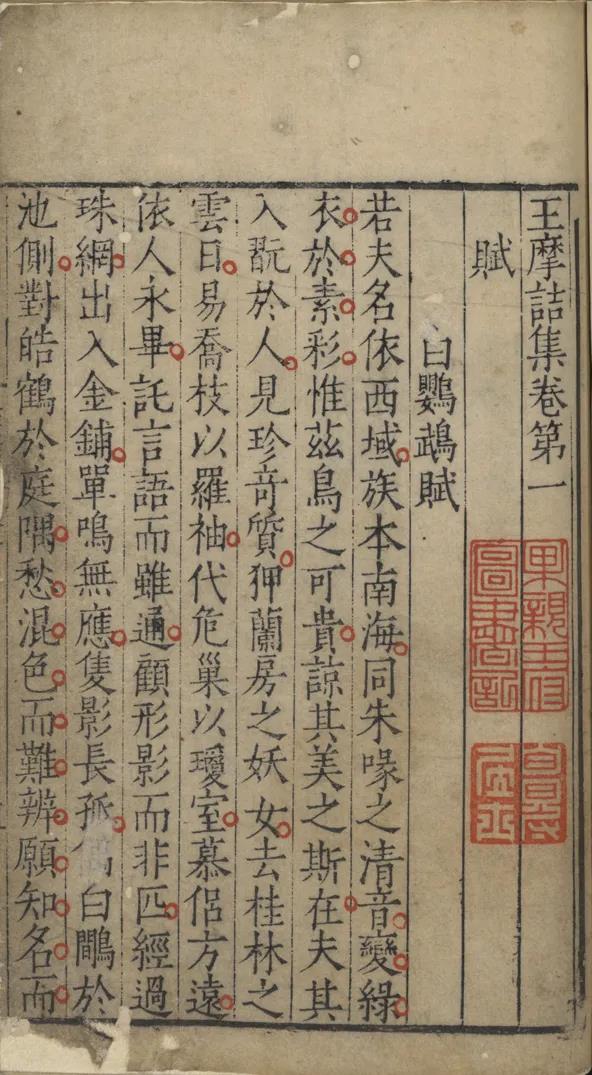 王摩詰集卷第一
賦
白鸚鵡賦
若夫名依西域族本南海同朱喙之清音變綠
衣於素彩惟茲鳥之可貴諒其美之斯在夫其
入翫於人見珍奇質狎蘭房之妖女去桂林之
雲日易喬枝以羅袖代危巢以瓊室慕侶方遠
依人永畢託言語而雖通顧形影而非匹經過
珠網出入金鋪單鳴無應隻影長孤偶白鷳於
池側對皓鶴於庭隅愁混色而難辨願知名而
果親王府
圖書記